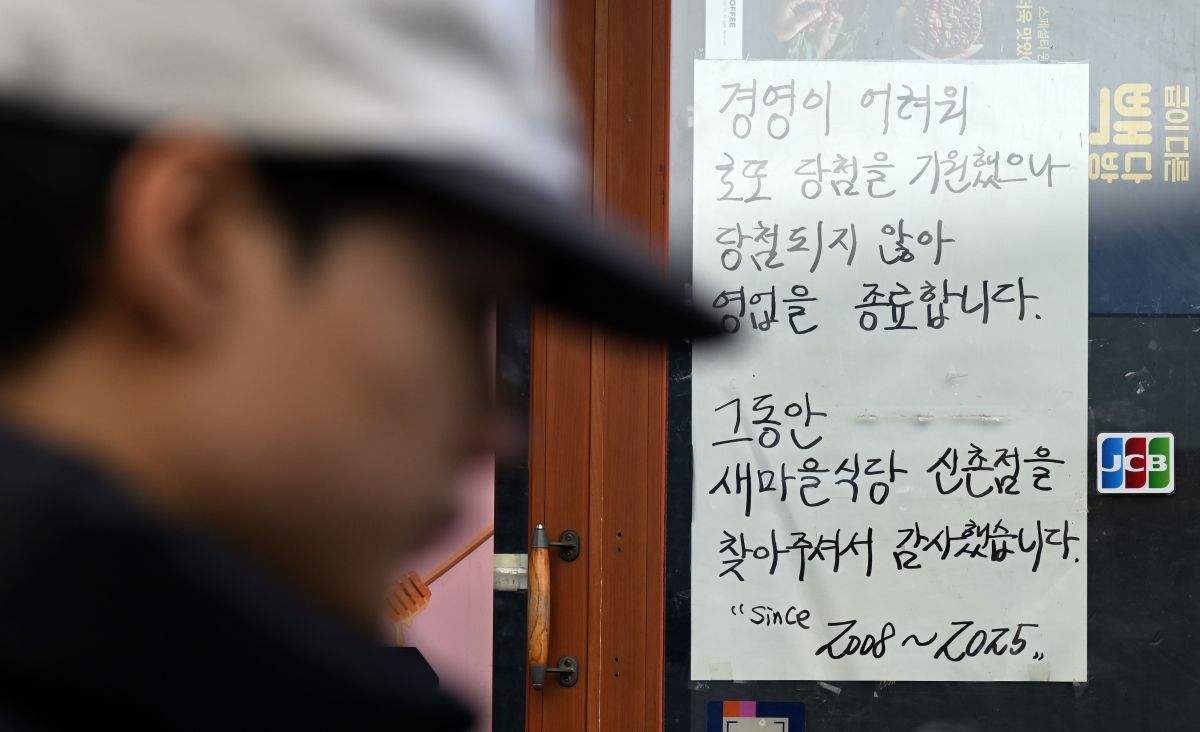 COFFEE
경영이 어려워
로또 당첨을 기원했으나
당첨되지 않아
영업을 종료합니다.
그동안
새마을식당 신촌점을
찾아주셔서 감사했습니다.
"since 2008~2025"
JCB